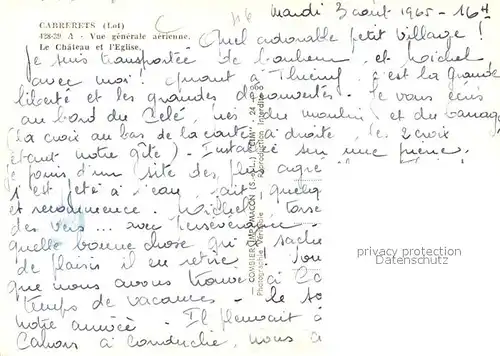 CABRERETS (Lot)
428-29 A - Vue générale aérienne.
Le Château et l'Eglise.
Mardi 3 août 1965 - 16H
Quel adorable petit village !
Je suis transportée de bonheur, et Michel
avec moi ! Quant à Thierry c'est la grande
liberté et les grandes découvertes. Je vous écris
au bord du Célé, près du moulin et du barrage
(la croix au bas de la carte à droite, les 2 croix
étant notre gîte) - Installée sur une pierre,
je jouis d'un site des plus
s'est jeté à l'eau, fait quelq
et recommence. Michel
des vers ... avec persévérance
quelle bonne chose qui
de plaisir il en retire
que nous avons trouvé à Ca
temps de vacances - le
notre arrivée - Il pleuvait à
Cahors à Conduché, nous a
COMBIER IMP. MACON (S.-L.)
Photographie Véritable - Reproduction Interdite
privacy protection
Datenschutz